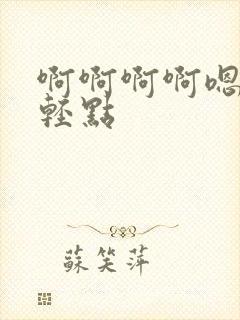 啊啊啊啊嗯
輕點
蘇笑萍